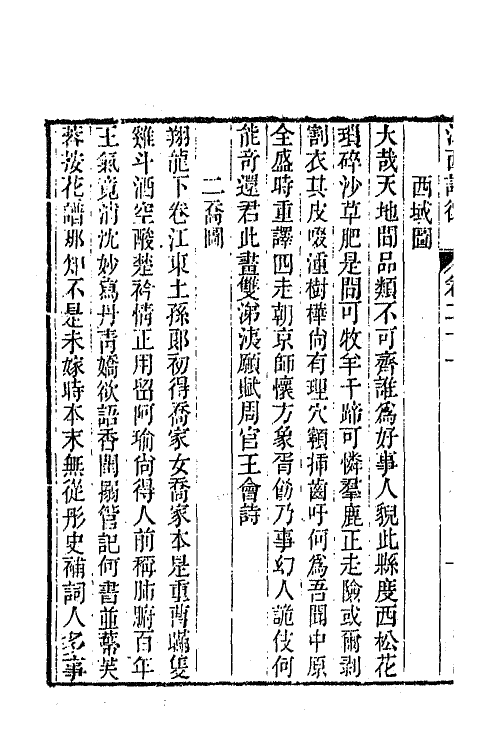 江西詩徵
卷二十一
西域圖
大哉天地間品類不可齊誰為好事人貌此縣度西松花
瑣碎沙草肥是間可牧羊千蹄可憐羣鹿正走險或爾剝
割衣其皮啜湩樹樺尚有理穴顙揷齒吁何為吾聞中原
全盛時重譯四走朝京師懷方象胥飭乃事幻人詭伎何
能奇還君此畫雙涕洟願賦周官王會詩
二喬圖
翔龍下卷江東土孫郎初得喬家女喬家本是重曹瞞隻
雞斗酒空酸楚衿情正用留阿瑜尚得人前稱肺腑百年
王氣竟消沈妙寫丹靑嬌欲語香閨搦管記何書並葉芙
蓉按花譜那知不是未嫁時本末無從彤史補詞人多事